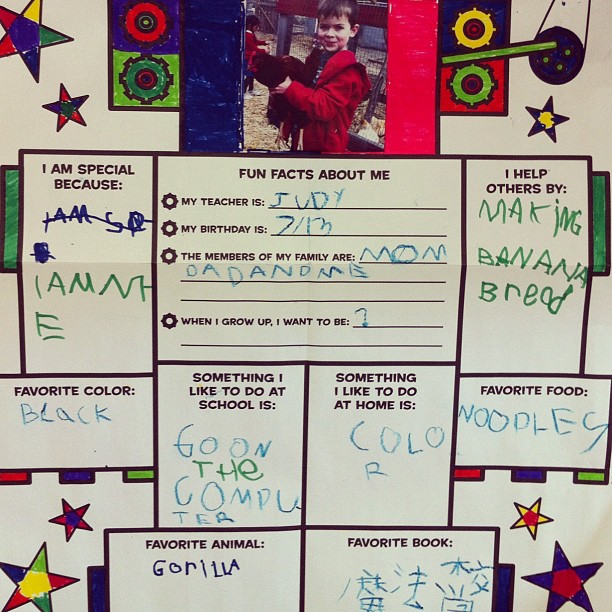 I AM SPECIAL
BECAUSE:
I AM SP
I AM NI
E
FUN FACTS ABOUT ME
MY TEACHER IS: JUDY
MY BIRTHDAY IS: 7/13
THE MEMBERS OF MY FAMILY ARE: MOM
DADANDME
WHEN I GROW UP, I WANT TO BE: ?
I HELP
OTHERS BY:
MAKING
BANANA
Bread
FAVORITE COLOR:
BLACK
SOMETHING I
LIKE TO DO AT
SCHOOL IS:
GO ON
THE
COMPU
TER
SOMETHING
I LIKE TO DO
AT HOME IS:
COLO
R
FAVORITE FOOD:
NOODLES
FAVORITE ANIMAL:
GORILLA
FAVORITE BOOK:
魔法学校